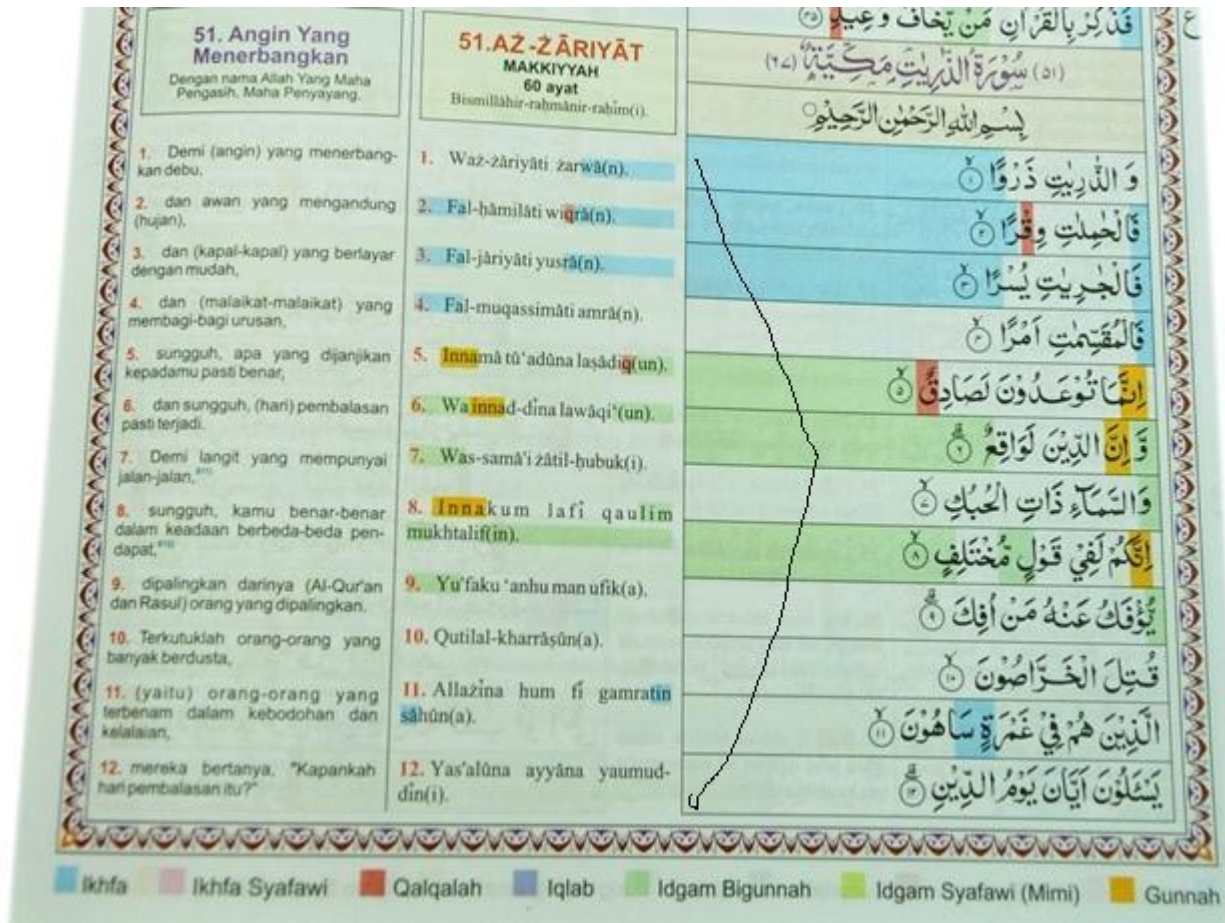 51. Angin Yang
Menerbangkan
Dengan nama Allah Yang Maha
Pengasih, Maha Penyayang.
1. Demi (angin) yang menerbang-
kan debu,
2. dan awan yang mengandung
(hujan),
3. dan (kapal-kapal) yang berlayar
dengan mudah,
4. dan (malaikat-malaikat) yang
membagi-bagi urusan,
5. sungguh, apa yang dijanjikan
kepadamu pasti benar,
6. dan sungguh, (hari) pembalasan
pasti terjadi.
7. Demi langit yang mempunyai
jalan-jalan,
8. sungguh, kamu benar-benar
dalam keadaan berbeda-beda pen-
dapat,
9. dipalingkan darinya (Al-Qur'an
dan Rasul) orang yang dipalingkan.
10. Terkutuklah orang-orang yang
banyak berdusta,
11. (yaitu) orang-orang yang
terbenam dalam kebodohan dan
kelalaian,
12. mereka bertanya, "Kapankah
hari pembalasan itu?"
51.AŻ-ŻĀRIYĀT
MAKKIYYAH
60 ayat
Bismillāhir-raḥmānir-raḥīm(i).
1. Waż-żāriyāti żarwā(n).
2. Fal-ḥāmilāti wiqrā(n).
3. Fal-jāriyāti yusrā(n).
4. Fal-muqassimāti amrā(n).
5. Innamā tū'adūna laṣādiq(un).
6. Wa innad-dīna lawāqi'(un).
7. Was-samā'i żātil-ḥubuk(i).
8. Innakum lafī qaulim
mukhtalif(in).
9. Yu'faku 'anhu man ufik(a).
10. Qutilal-kharrāṣūn(a).
11. Allażīna hum fī gamratin
sāhūn(a).
12. Yas'alūna ayyāna yaumud-
dīn(i).
فَذَكِّرْ بِالْقُرْاٰنِ مَنْ يَّخَافُ وَعِيْدِ ۝٤٥
(٥١) سُوْرَةُ الذّٰرِيٰتِ مَكِّيَّةٌ (٦٧)
بِسْمِ اللّٰهِ الرَّحْمٰنِ الرَّحِيْمِ
وَ الذّٰرِيٰتِ ذَرْوًا ۝١
فَالْحٰمِلٰتِ وِقْرًا ۝٢
فَالْجٰرِيٰتِ يُسْرًا ۝٣
فَالْمُقَسِّمٰتِ اَمْرًا ۝٤
اِنَّمَا تُوْعَدُوْنَ لَصَادِقٌ ۝٥
وَّاِنَّ الدِّيْنَ لَوَاقِعٌ ۝٦
وَالسَّمَاۤءِ ذَاتِ الْحُبُكِ ۝٧
اِنَّكُمْ لَفِيْ قَوْلٍ مُّخْتَلِفٍ ۝٨
يُّؤْفَكُ عَنْهُ مَنْ اُفِكَ ۝٩
قُتِلَ الْخَرّٰصُوْنَ ۝١٠
الَّذِيْنَ هُمْ فِيْ غَمْرَةٍ سَاهُوْنَ ۝١١
يَسْـَٔلُوْنَ اَيَّانَ يَوْمُ الدِّيْنِ ۝١٢
Ikhfa Ikhfa Syafawi Qalqalah Iqlab Idgam Bigunnah Idgam Syafawi (Mimi) Gunnah